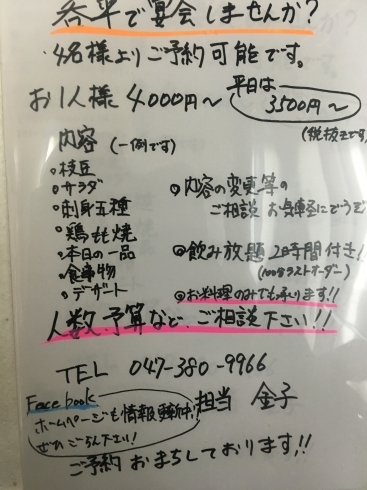 呑平で宴会しませんか?
4名様よりご予約可能です。
お1人様 4000円〜 平日は 3500円〜
(税抜きです)
内容 (一例です)
・枝豆
・サラダ
・刺身五種
・鶏もも焼
・本日の一品
・食事物
・デザート
◎内容の変更等の
ご相談 お気軽にどうぞ
◎飲み放題 2時間付き!
(100分ラストオーダー)
◎お料理のみでも承ります!!
人数、予算など、ご相談下さい!!
TEL 047-380-9966
Facebook
ホームページも情報更新中!
ぜひごらん下さい!
担当 金子
ご予約おまちしております!!